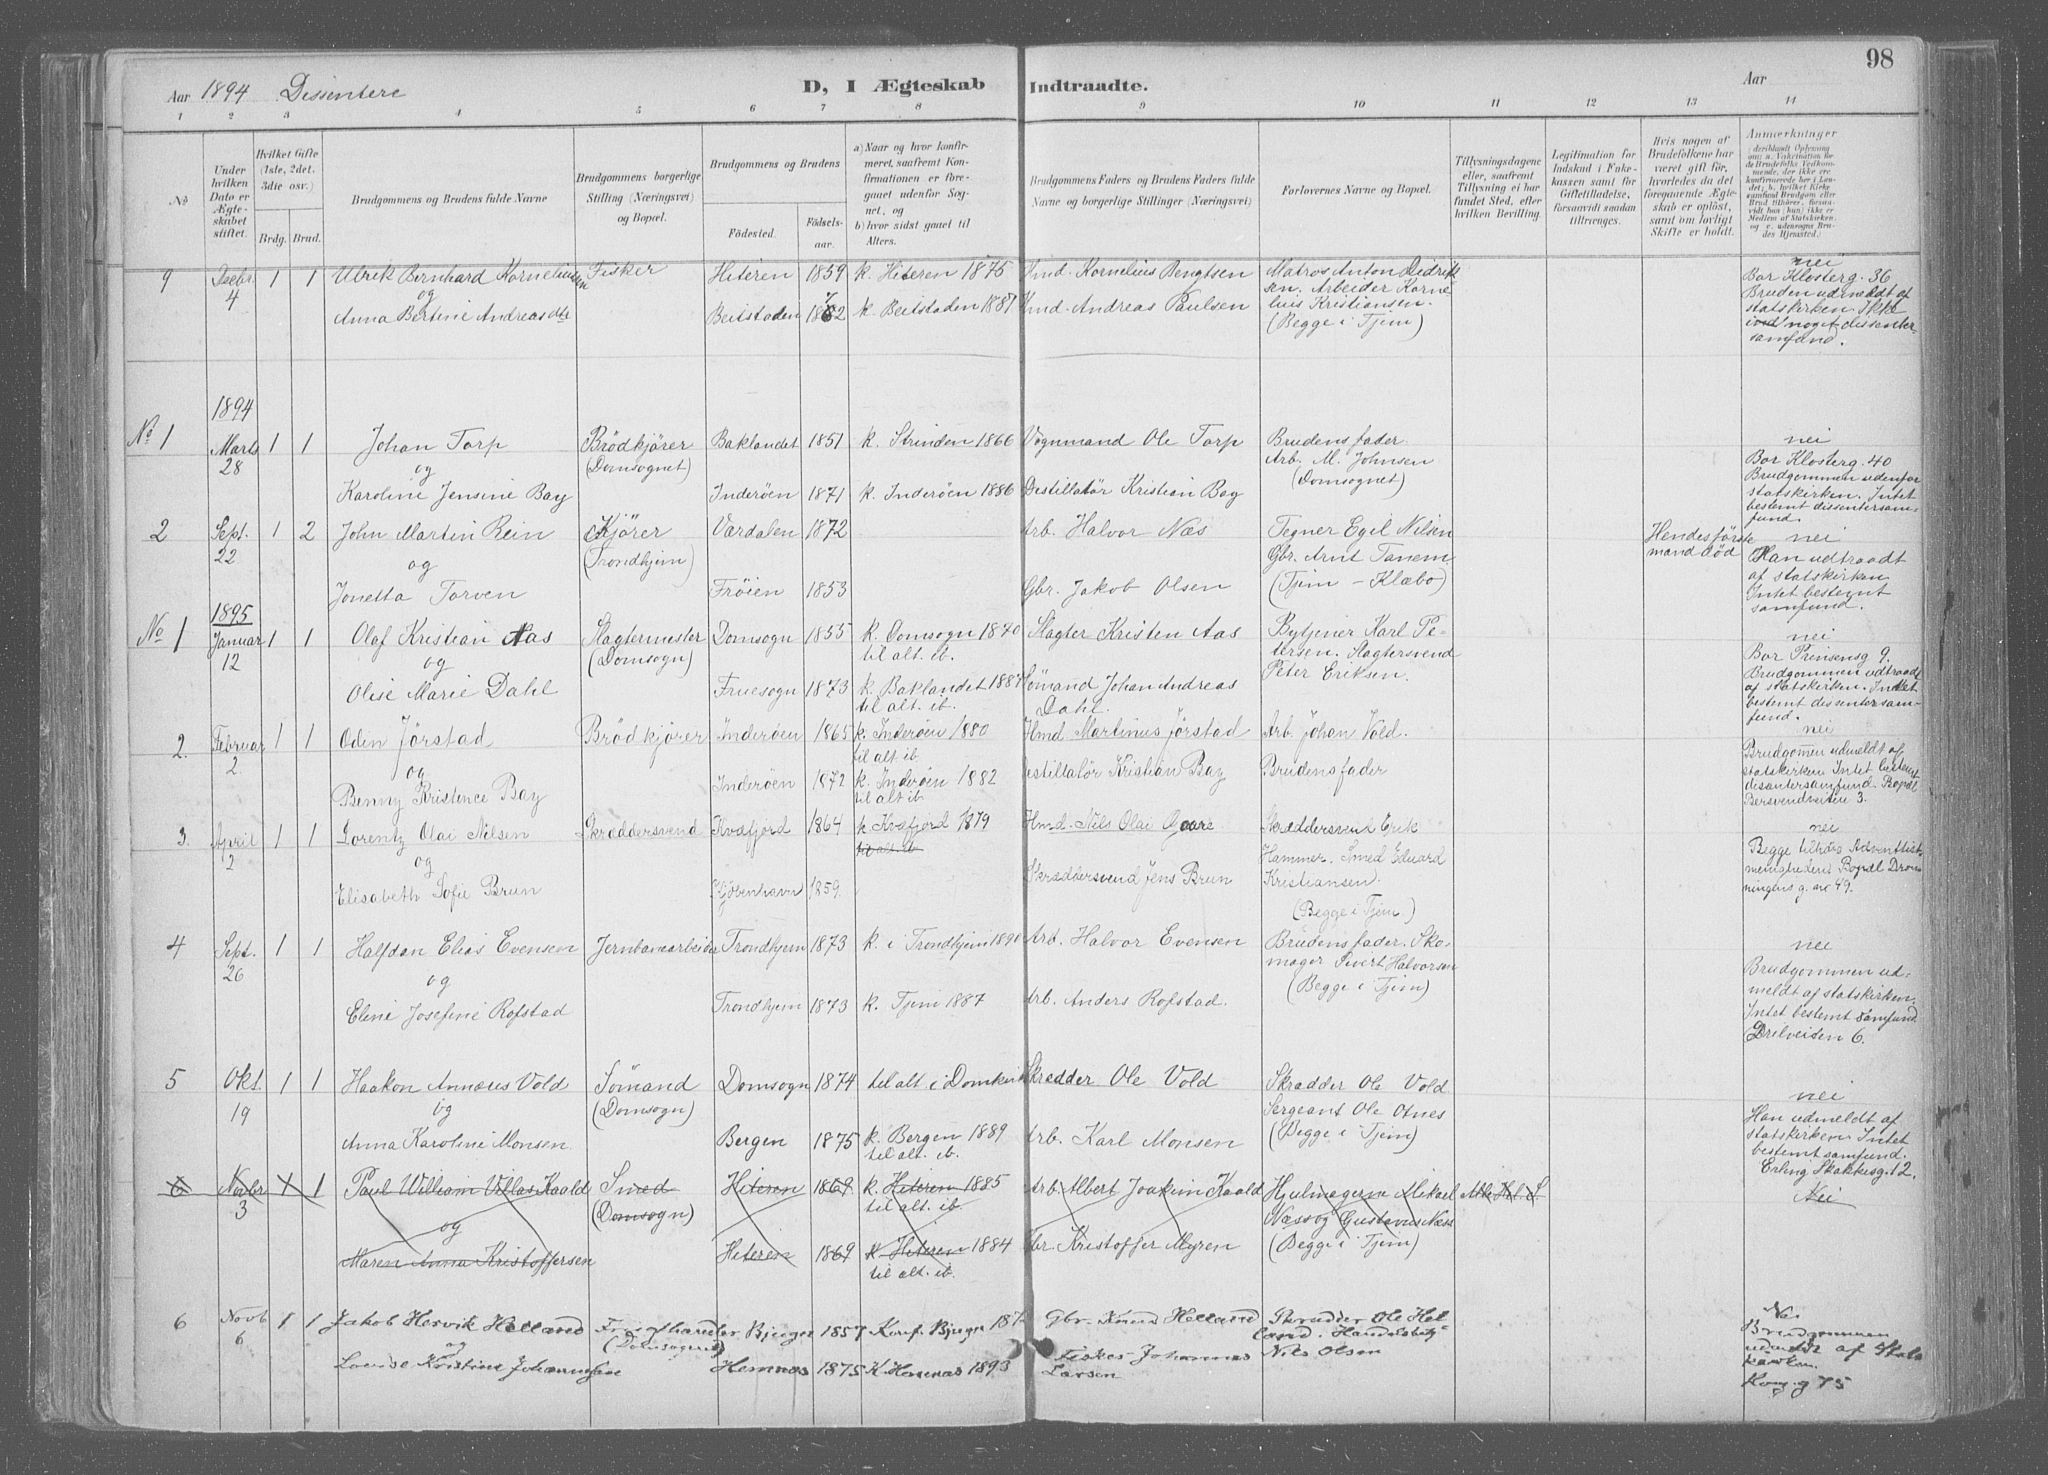 98
Aar 1894 Dissentere D, I Ægteskab Indtraadte. Aar
1 2 3 4 5 6 7 8 9 10 11 12 13 14
No
Under hvilken Dato er Ægteskabet stiftet.
Hvilket Gifte (1ste, 2det, 3die osv.)
Brdg. Brud.
Brudgommens og Brudens fulde Navne
Brudgommens borgerlige Stilling (Næringsvei) og Bopæl.
Brudgommens og Brudens
Födested. Födselsaar.
a) Naar og hvor konfirmeret, saafremt Konfirmationen er foregaaet udenfor Sognet, og
b) hvor sidst gaaet til Alters.
Brudgommens Faders og Brudens Faders fulde Navne og borgerlige Stillinger (Næringsvei)
Forlovernes Navne og Bopæl.
Tillysningsdagene eller, saafremt Tillysning ei har fundet Sted, efter hvilken Bevilling.
Legitimation for Indskud i Enkekassen samt for Giftetilladelse, forsaavidt saadan tiltrænges.
Hvis nogen af Brudefolkene har været gift för, hvorledes da det foregaaende Ægteskab er oplöst, samt om lovligt Skifte er holdt.
Anmærkninger
9 Decbr. 4 1 1 Ulrik Bernhard Korneliussen Fisker Hiteren 1859 k. Hiteren 1875 Hmd. Kornelius Bengtsen Matros Anton Didriksen. Arbeider Kornelius Kristiansen. (Begge i Tjem)
og
Anna Bertine Andreasdtr Beitstaden 1872 k. Beitstaden 1887 Hmd. Andreas Paulsen
nei
Bor Klosterg. 36
Bruden udmeldt af
statskirken. Ikke
ind i noget dissenter-
samfund.
1894
No 1 Marts 28 1 1 Johan Torp Brödkjörer (Domsognet) Baklandet 1851 k. Strinden 1866 Vognmand Ole Torp Brudens fader. Arb. M. Johnsen (Domsognet)
og
Karoline Jensine Bay Inderöen 1871 k. Inderöen 1886 Destillatör Kristian Bay
nei
Bor Klosterg. 40
Brudgommen udenfor
statskirken. Intet
bestemt dissentersam-
fund.
2 Sept. 22 1 2 John Martin Rein Kjörer (Trondhjem) Værdalen 1872 Arb. Halvor Næs Tegner Egil Nilsen Gbr. Arnt Tanem (Tjem - Klæbo) Hendes förste mand död
og
Jonetta Torven Fröien 1853 Gbr. Jakob Olsen
nei
Han udtraadt
af statskirken
Intet bestemt
samfund.
1895
No 1 Januar 12 1 1 Olaf Kristian Aas Slagtermester (Domsogn) Domsogn 1855 k. Domsogn 1870 til alt. ib. Slagter Kristen Aas Bytjener Karl Petersen. Slagtersvend Peter Eriksen.
og
Olise Marie Dahl Fruesogn 1873 k. Baklandet 1887 til alt. ib. Sömand Johan Andreas Dahl.
nei
Bor Prinsensg 9.
Brudgommen udtraadt
af statskirken. Intet
bestemt dissentersam-
fund.
2. Februar 2 1 1 Odin Jörstad Brödkjörer Inderöen 1865 k. Inderöen 1880 til alt ib. Hmd. Martinus Jörstad Arb. Johan Vold.
og
Benny Kristence Bay Inderöen 1872 k. Inderöen 1882 til alt ib. Destillatör Kristian Bay Brudens fader
nei
Brudgomen udmeldt af
statskirken Intet bestemt
disentersamfund. Bopæl
Bersvendveiten 3.
3. April 2 1 1 Lorentz Olai Nilsen Skræddersvend Kvæfjord 1864 k Kvæfjord 1879 til alt. ib. Hmd. Nils Olai Skræddersvend Erik Hammer. Smed Eduard Kristiansen. (Begge i Tjem.)
og
Elisabeth Sofie Brun Kjöbenhavn 1859. Skræddersvend Jens Brun
nei
Begge tilhöre Adventist-
menigheden. Bopæl Dron-
ningens g. no 49.
4 Sept. 26 1 1 Halfdan Elias Evensen Jernbanearbeider Trondhjem 1873 k. i Trondhjem 1890 Arb. Halvor Evensen Brudens fader. Skomager Sivert Halvorsen (Begge i Tjem)
og
Eline Josefine Rofstad Trondhjem 1873 k. Tjem 1887 Arb. Anders Rofstad.
nei
Brudgommen ud-
meldt af statskirken.
Intet bestemt samfund.
Drelveiden 6.
5 Okt. 19 1 1 Haakon Annæus Vold Sömand (Domsogn) Domsogn 1874 til alt. i Domkirk Skrædder Ole Vold Skrædder Ole Vold Sergeant Ole Otnes (Begge i Tjem)
og
Anna Karoline Monsen Bergen 1875 k. Bergen 1889 til alt. ib. Arb. Karl Monsen
nei
Han udmeldt af
statskirken Intet
bestemt samfund.
Erling Skakkesg. 12.
6 Novbr 3 1 1 Paul William Villas Kaald Smed (Domsogn) Hiteren 1869 k. Hiteren 1885 til alt. ib. Arb Albert Joakim Kaald Hjulmagerne Mikael Næss og Gustavus Næss (Begge i Tjem)
og
Maren Anna Kristoffersen Hiteren 1869 k Hiteren 1884 til alt. ib. Gbr. Kristoffer Myren
Nei
6 Novb 6 1 1 Jakob Hervik Helland (Domsognet) Bjugn 1857 Konf. Bjugn Gbr. Knud Helland Skrædder Ole Helland. Nils Olsen
og
Lovise Kristine Johannesen Hemnæs 1875 K. Hemnæs 1893 Fisker Johannes Larsen
Nei
Brudgommen
udmeldt af Stats
kirken.
Kong. g 75